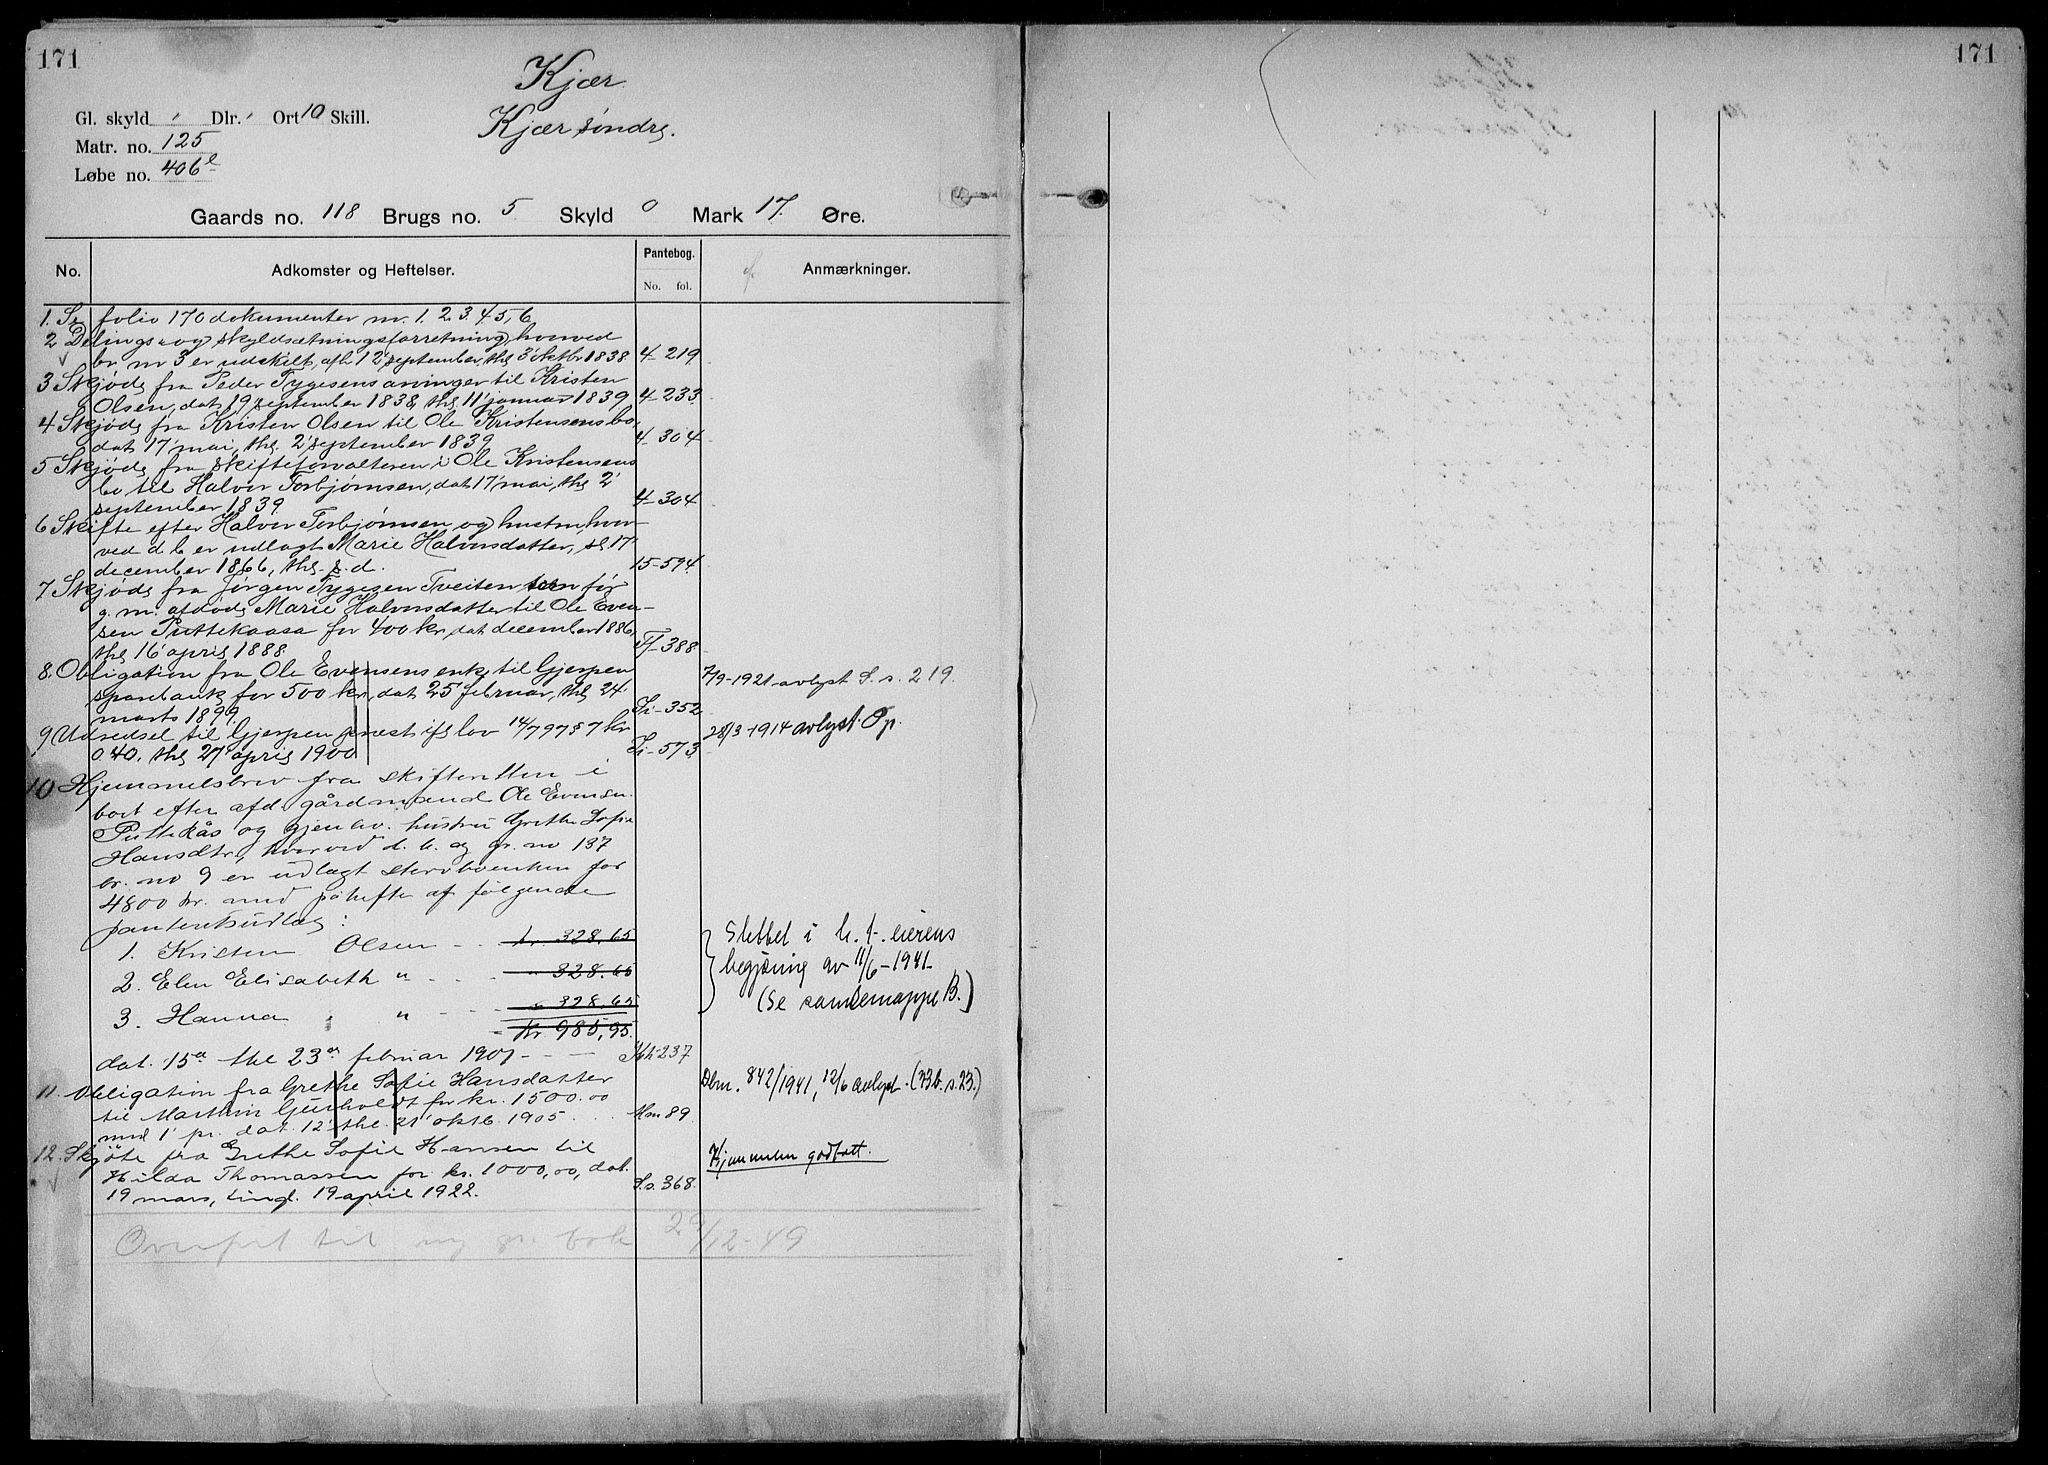 171
171
Kjær
Kjær søndre.
Gl. skyld Dlr. Ort 10 Skill.
Matr. no. 125
Løbe no. 406 e
Gaards no. 118 Brugs no. 5 Skyld 0 Mark 17. Øre.
No. Adkomster og Heftelser. Pantebog. No. fol. Anmærkninger.
1. Se folio 170 dokumenter nr. 1. 2. 3. 4. 5, 6
2 Delings- og skyldsætningsforretning, hvorved
br. nr 3 er udskilt, afh. 12' september, thl 3' oktbr 1838. 4-219
3 Skjøde fra Peder Tygesens arvinger til Kristen
Olsen, dat 19 september 1838, thl 11' januar 1839 4-233
4 Skjøde fra Kristen Olsen til Ole Kristensens bo,
dat 17' mai, thl 2' september 1839 4-304
5 Skjøde fra skifteforvalteren i Ole Kristensens
bo til Halvor Torbjørnsen, dat 17' mai, thl 2'
september 1839. 4-304
6 Skifte efter Halvor Torbjørnsen og hustru, hvor-
ved d. b. er udlagt Marie Halvorsdatter, sl 17'
december 1866, thl. s. d. 15-594
7 Skjøde fra Jørgen Tygesen Tveiten som før
g. m. afdøde Marie Halvorsdatter til Ole Even-
sen Puttekaasa for 400 kr, dat december 1886,
thl 16' april 1888 -388
8. Obligation fra Ole Evensens enke til Gjerpen
sparebank for 500 kr, dat 25' februar, thl 24'
marts 1899. -352
7/9-1921 avlyst S. s. 219.
9 Udredsel til Gjerpen prest ifl lov 14/7 97 § 7 kr
0.40. thl 27' april 1900 -573
28/3-1914 avlyst. Op.
10 Hjemmelsbrev fra skifteretten i
boet efter afd. gårdmand Ole Evensen
Puttekås og gjenlev. hustru Grethe Sofie
Hansdtr, hvorved d. b. og gr. no 137
br. no 9 er udlagt sterboenken for
4800 kr. med påhefte af følgende
panteretsudlæg:
1. Kristen Olsen - - kr 328,65
2. Elen Elisabeth " - - - " 328.65
3. Hanna " - - - " 328,65
Kr 985,95.
Slettet i h. t. eierens
begjæring av 11/6-1941
(Se samlemappe B.)
dat. 15de thl 23de februar 1901 - - 237
11. Obligation fra Grethe Sofie Hansdatter
til Martin Gjurholdt for kr. 1500.00
med 1' pr. dat. 12' thl. 21' oktb. 1905 . . . 89
Dbnr. 842/1941, 12/6 avlyst. (23b. s. 23.)
12. Skjøte fra Grethe Sofie Hansen til
Hilda Thomassen for kr. 1000,00, dat.
19 mars, tingl. 19 april 1922. S.s. 368.
Hjemmelen godtatt.
Overført til ny gr. bok 29/12-49